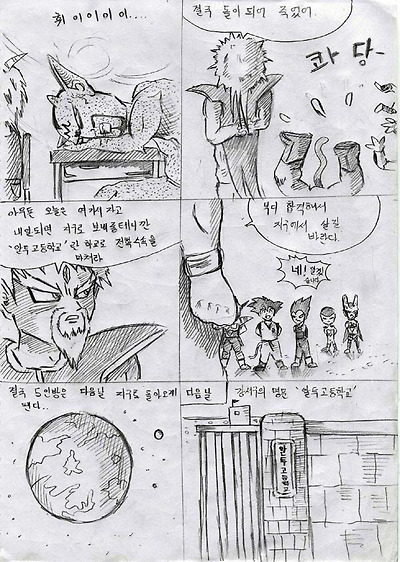 휘 이 이 이 이....
결국 돌이 되어 죽었어.
콰 당-
아무튼 오늘은 여기서 자고
내일되면 지구로 보내줄테니깐
'만두고등학교'란 학교로 전학수속을
마쳐라
부디 합격해서
지구에서 살길
바라다.
네!
결국 5인방은 다음날 지구로 돌아오게
됐다..
다음날 강서구의 명문 '만두고등학교'
만두고등학교